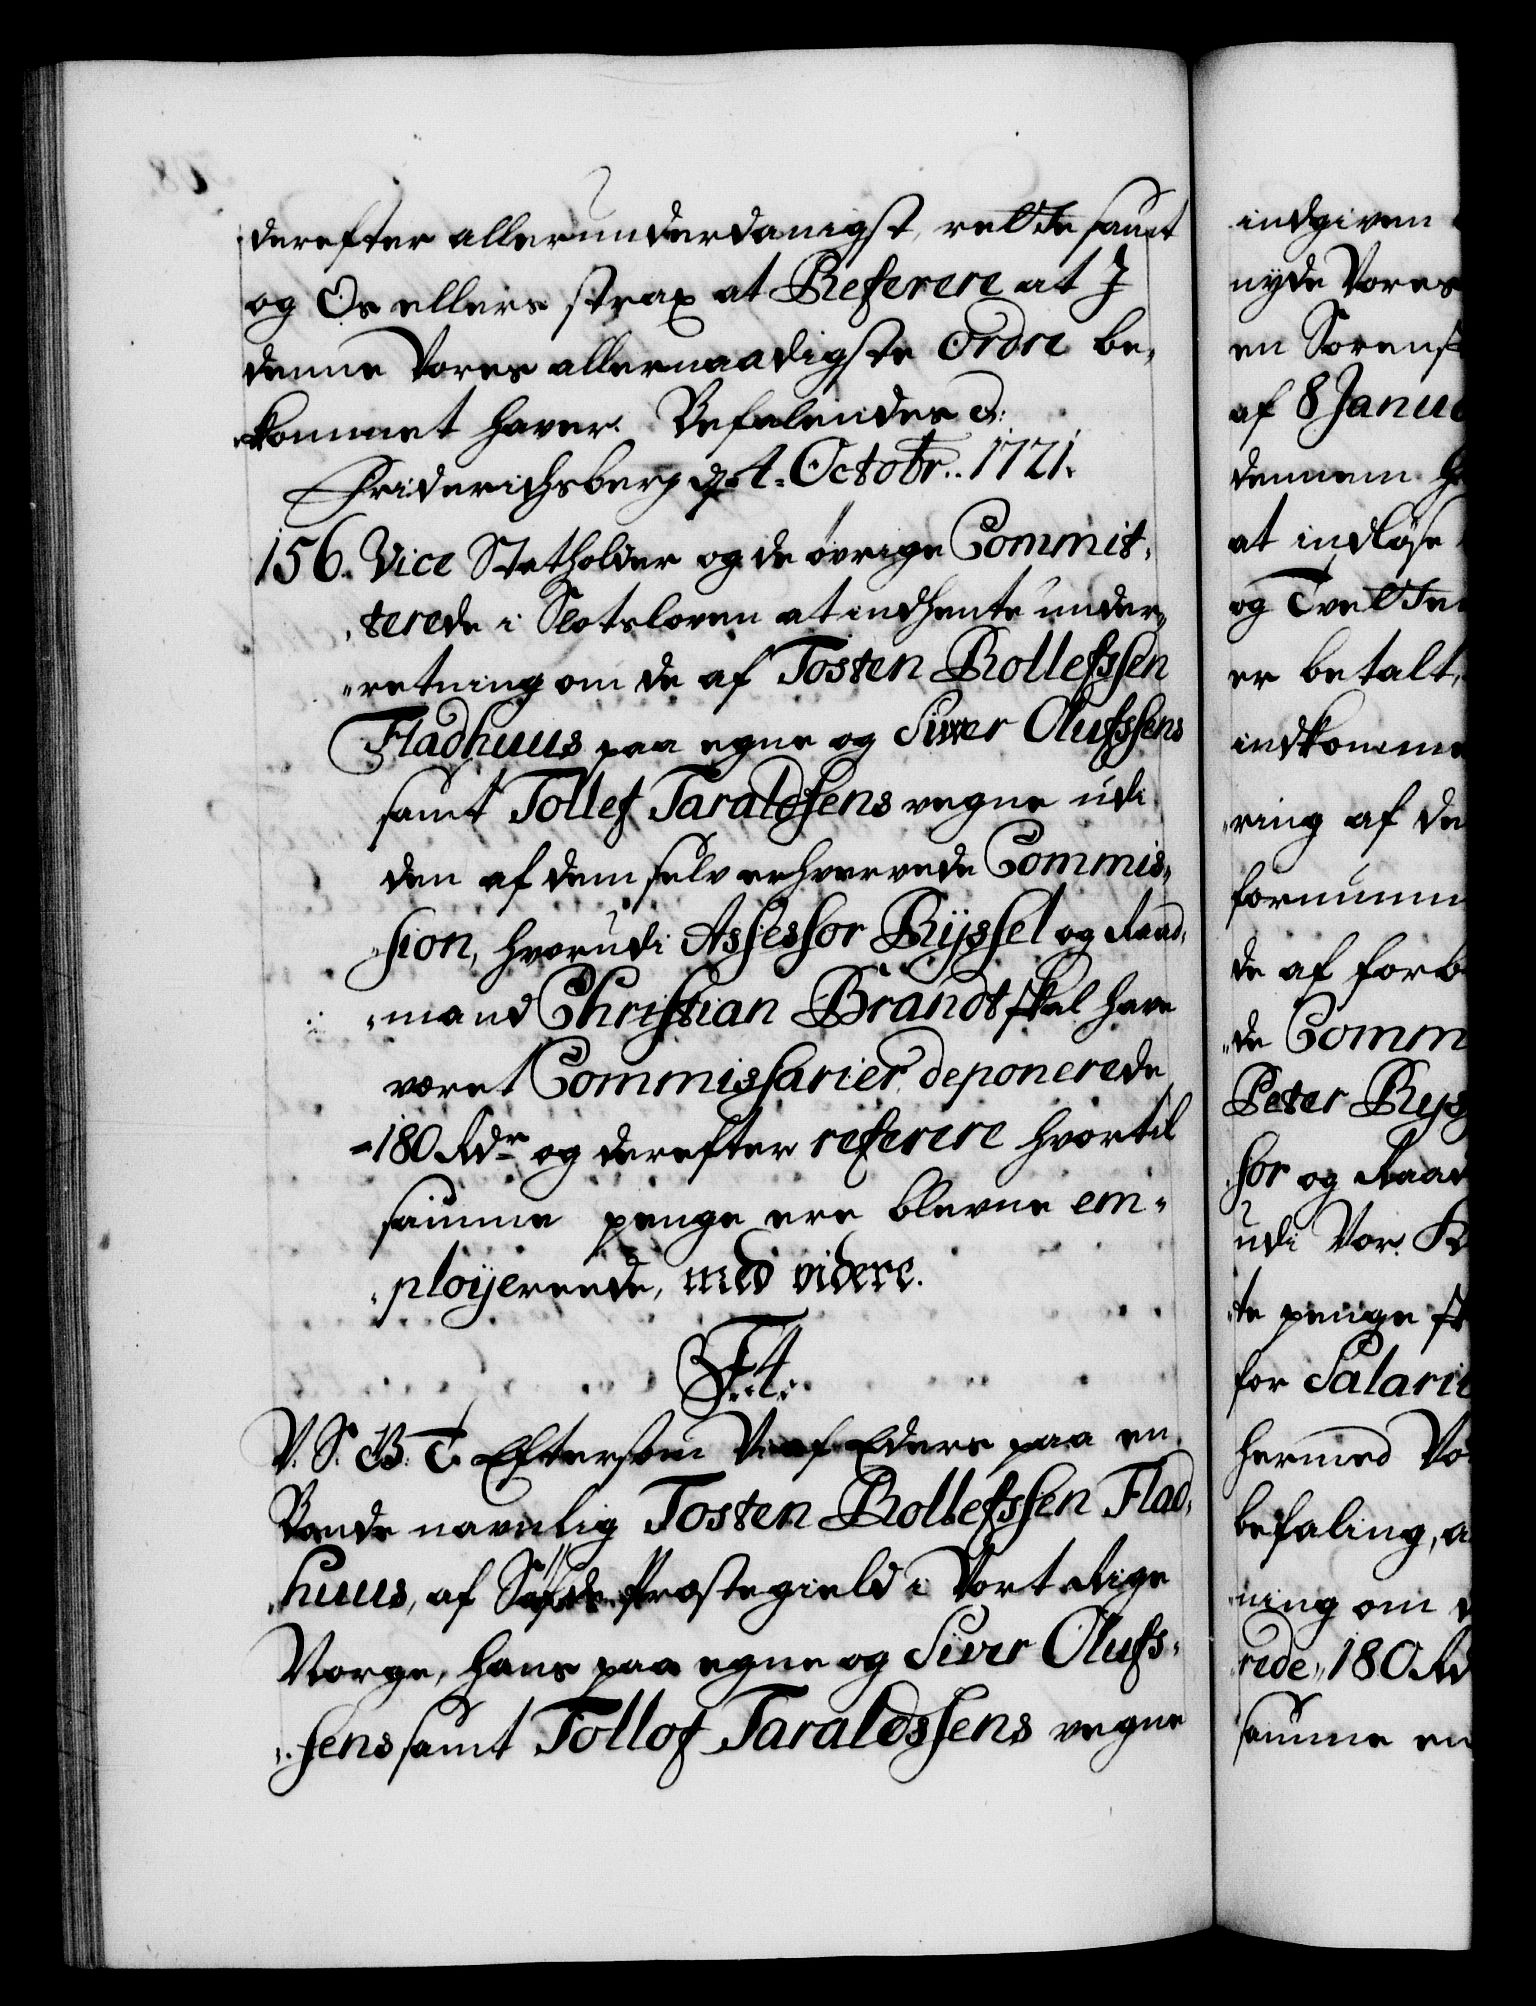 derefter allerunderdanigst rette samt
og Os ellers strax at Referere at I
denne Vores allernaadigste Ordre be-
kommet haver. Befalendes &:
Friderichsberg d. 4. Octobr. 1721.
156. Vice Statholder og de øvrige Commit-
terede i Slotsloven at indhente under-
retning om de af Tosten Rollefssen
Fladhuus paa egne og Siver Olufssens
samt Tollef Taraldsens vegne udi
den af dem selv erhvervede Commis-
sion, hvorudi Assessor Ryssel og Raad-
mand Christian Brandt skal have
været Commissarier deponerede
180 Rdr og derefter referere hvortil
samme penge ere blevne em-
ployerede, med videre.
F. 4.
V. S. B. T. Eftersom Vi af Eders paa en
Bonde navnlig Tosten Rollefssen Flad-
huus, af Præstegield i Vort Rige
Norge, hans paa egne og Siver Olufs-
sens samt Tollof Taraldssens vegne
indgiven
nyde Vores
en Sorens
af 8 Janua
dennem
at indløse
og Tvette
er betalt,
indkomme
ring af de
fornumm
de af forb
de Comm
Peter Rys
sor og Raad
udi Vor
te penge
for Salari
hermed Vo
befaling, a
ning om
rede 180 Rd
samme en